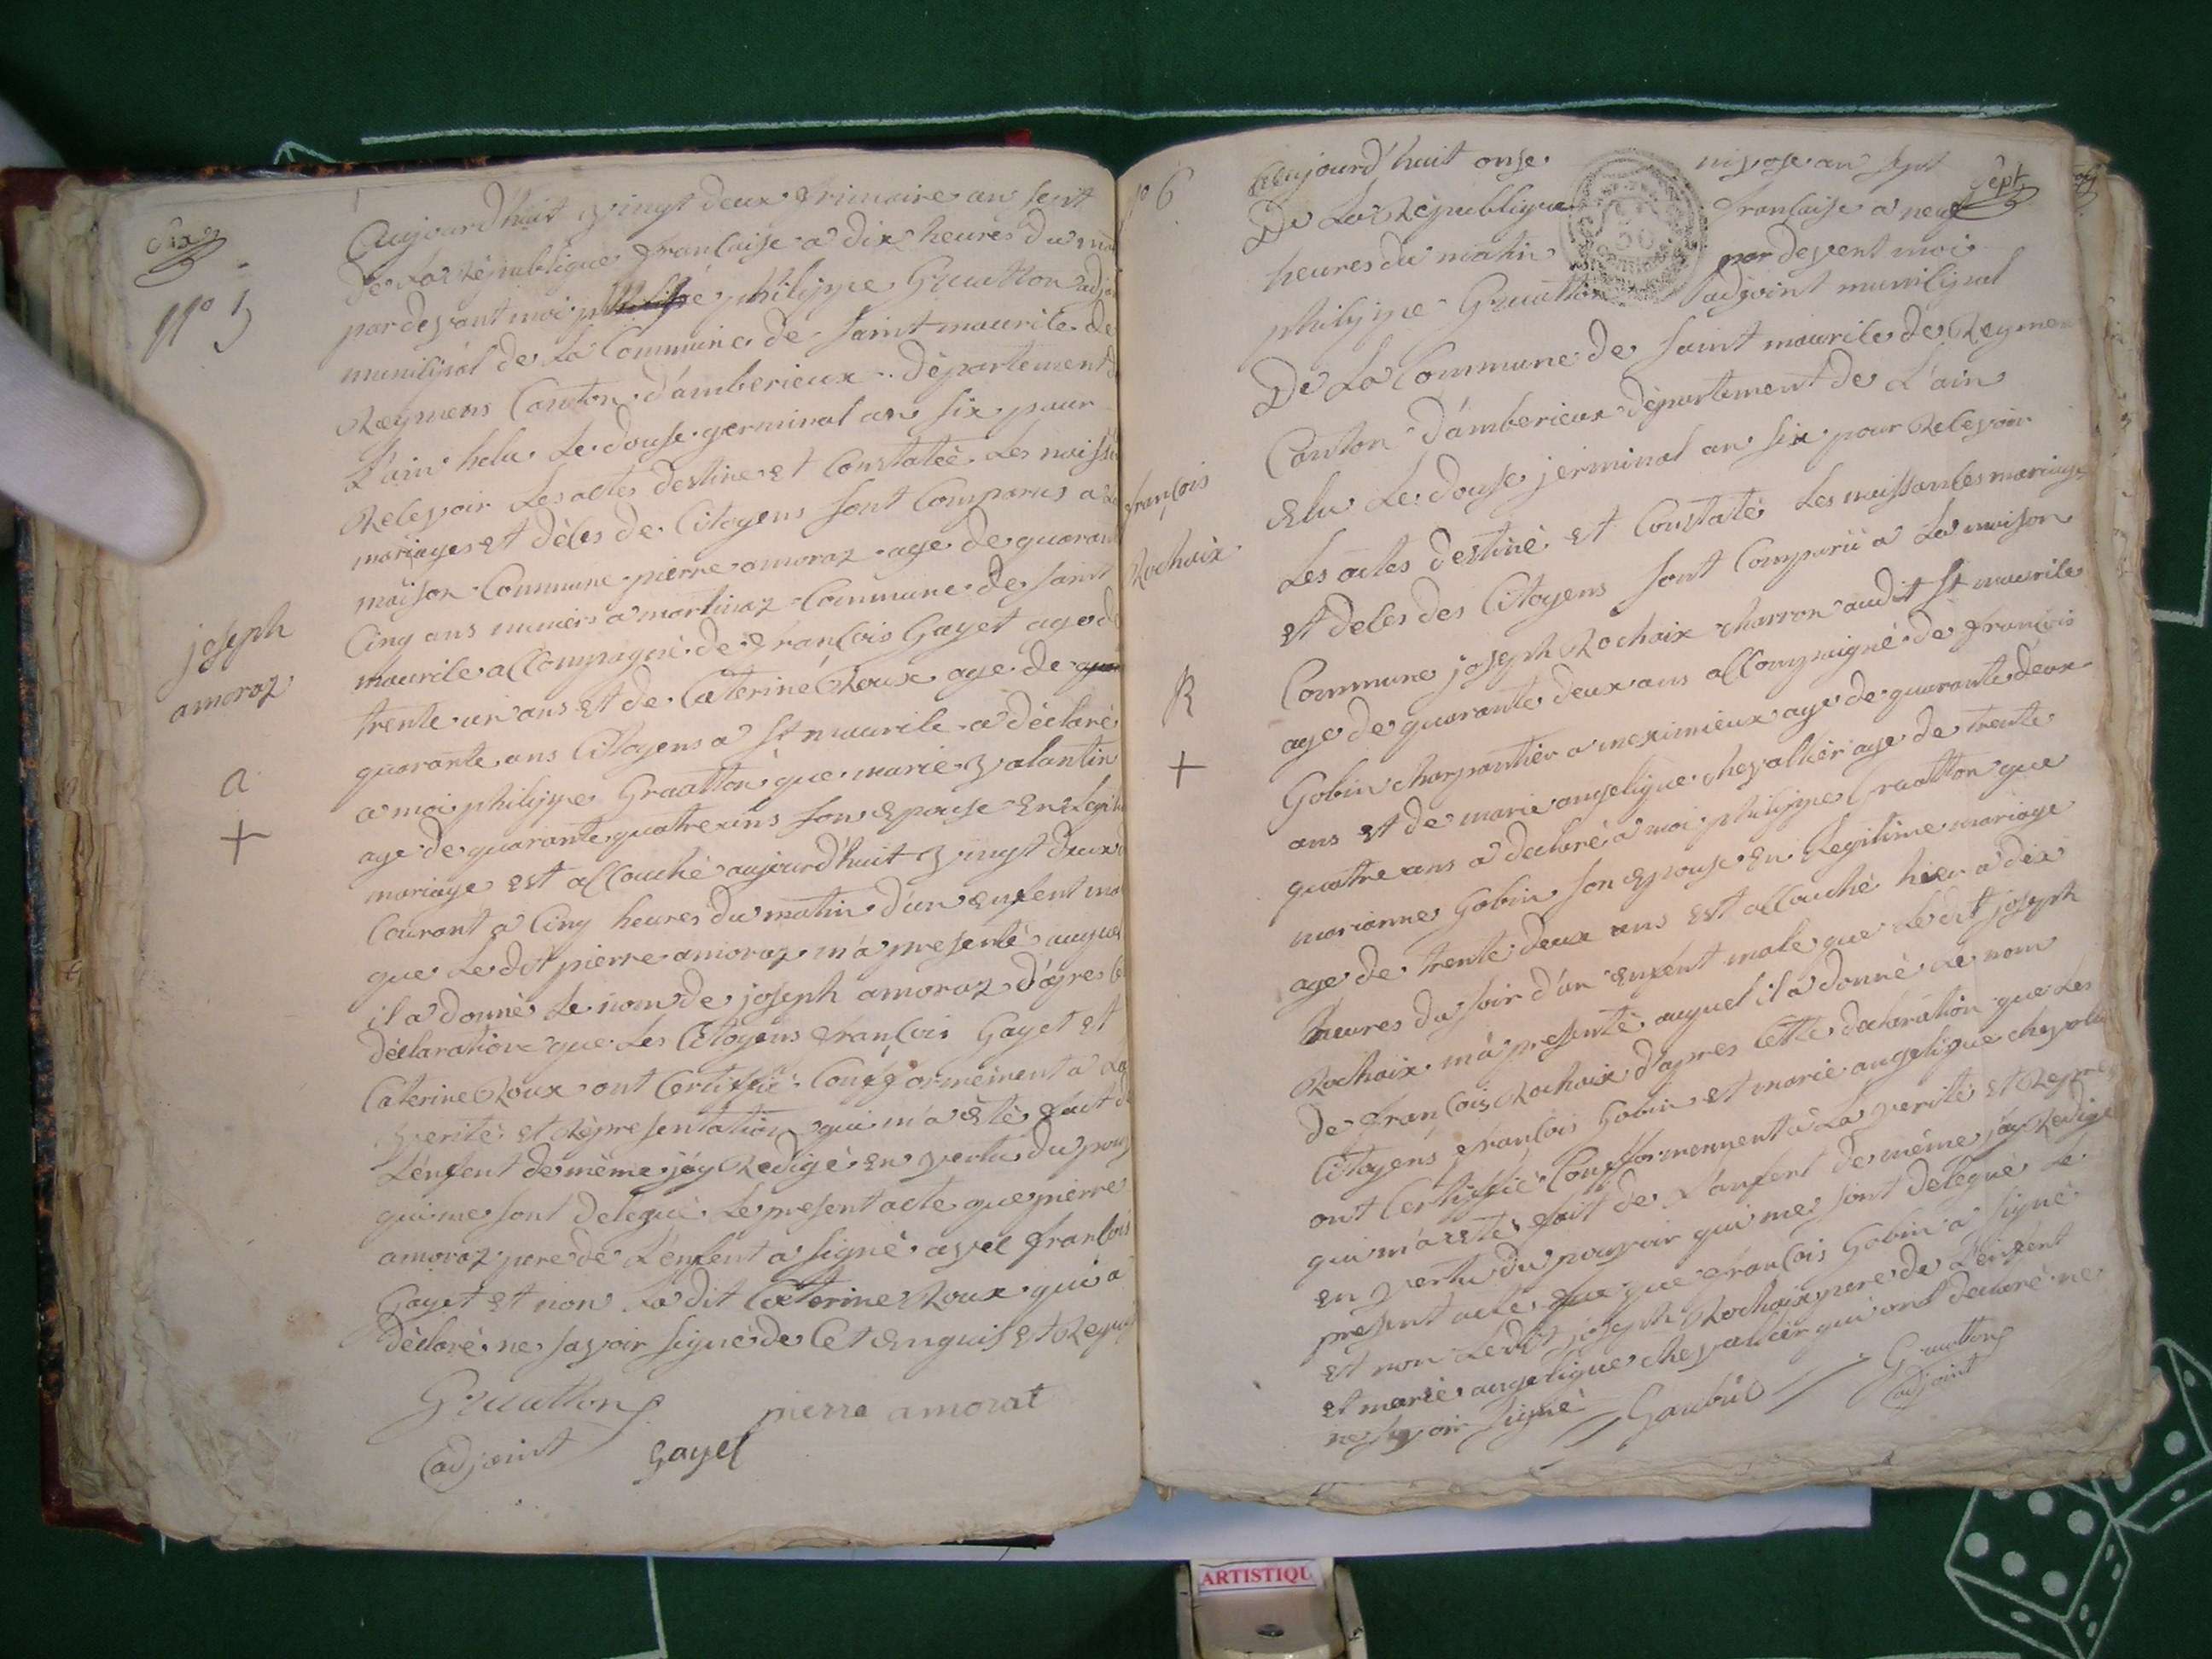 Six
nº 5
joseph
amoraz
a
+
aujourdhuit vingt deux frimaire an sept
de La République francaise a dix heures du
par devant moi philippe Gruatton
municipal de La Commune de Saint maurice de
Reymens Canton d'amberieux Département
L'ain helu Le douse germinal an six pour
Recevoir Les actes destine et Constateé Les
mariages et déces de Citoyens sont Comparus a
maison Commune pierre amoraz age de
Cinq ans a martinaz Commune de saint
maurice accompagné de francois Gayet age
trente un ans et de Caterine Roux age de
quarante ans Citoyens a St maurice a déclaré
a moi philippe Gruatton que marie valantin
age de quarante quatre ans son Epouse En
mariage est accouché aujourd'huit vingt deux
Courant a Cinq heures du matin d'un enfent
que Le dit pierre amoraz m'a presenté auquel
il a donné Le nom de joseph amoraz d'apres
déclaration que Les Citoyens francois Gayet et
Caterine Roux ont Certiffié Confformément a La
verité et Répresentation qui m'a été fait
L'enfent de même j'ey Redigé en vertu du
qui me sont delegué Le present acte que pierre
amoraz pere de L'enfent a signé avec francois
Gayet et non La dit Caterine Roux qui a
déclaré ne savoir signé de Cet enquis et
Gruatton
adjoint
Gayet
pierre amorat
nº 6
Sept
françois
Rochaix
R
+
aujourd'huit onse nivose an sept
De La République francaise a neuf
heures du matin par devent moi
philippe Gruatton adjoint municipal
De La Commune de saint maurice de
Canton d'amberieux département de L'ain
Elu Le douse jerminal an six pour Recevoir
Les actes destiné et Constaté Les naissances mariage
et deces des Citoyens sont Comparu a La maison
Commune joseph Rochaix charron audit St maurice
age de quarante deux ans accompaigné de francois
Gobin charpantier a meximieux age de quarante deux
ans et de marie angelique chevallier age de trente
quatre ans a declaré a moi philippe Gruatton que
marianne Gobin son epouse en Legitime mariage
age de trente deux ans est accouché hier a dix
heures du soir d'un enfent male que Ledit joseph
Rochaix m'a presenté auquel il a donné Le nom
de françois Rochaix d'apres Cette declaration que Les
Citoyens francois Gobin et marie angelique
ont Certiffié Confformément a La verité et
qui m'a esté fait de L'anfent de même j'ay Redigé
en vertu du pouvoir qui me sont delegué Le
present acte que francois Gobin a signé
et non Ledit joseph Rochaix pere de L'enfent
et marie angelique chevalier qui ont declaré ne
ne savoir signé
Gruatton
adjoint
ARTISTIQU